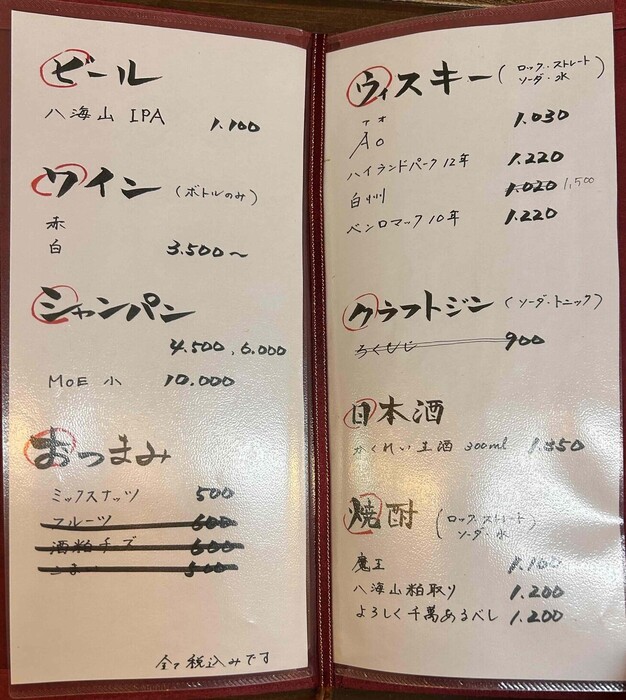 ビール
八海山 IPA 1.100
ワイン (ボトルのみ)
赤
白 3.500～
シャンパン
4.500, 6.000
MOE 小 10.000
おつまみ
ミックスナッツ 500
フルーツ 600
酒粕チーズ 600
500
全て税込みです
ウィスキー (ロック・ストレート
ソーダ・水)
アオ
AO 1.030
ハイランドパーク 12年 1.220
白州 1.020 1,500
ベンロマック 10年 1.220
クラフトジン (ソーダ・トニック)
ろくもじ 900
日本酒
かくれい生酒 300ml 1.350
焼酎 (ロック・ストレート
ソーダ・水)
魔王 1.100
八海山粕取り 1.200
よろしく千萬あるべし 1.200